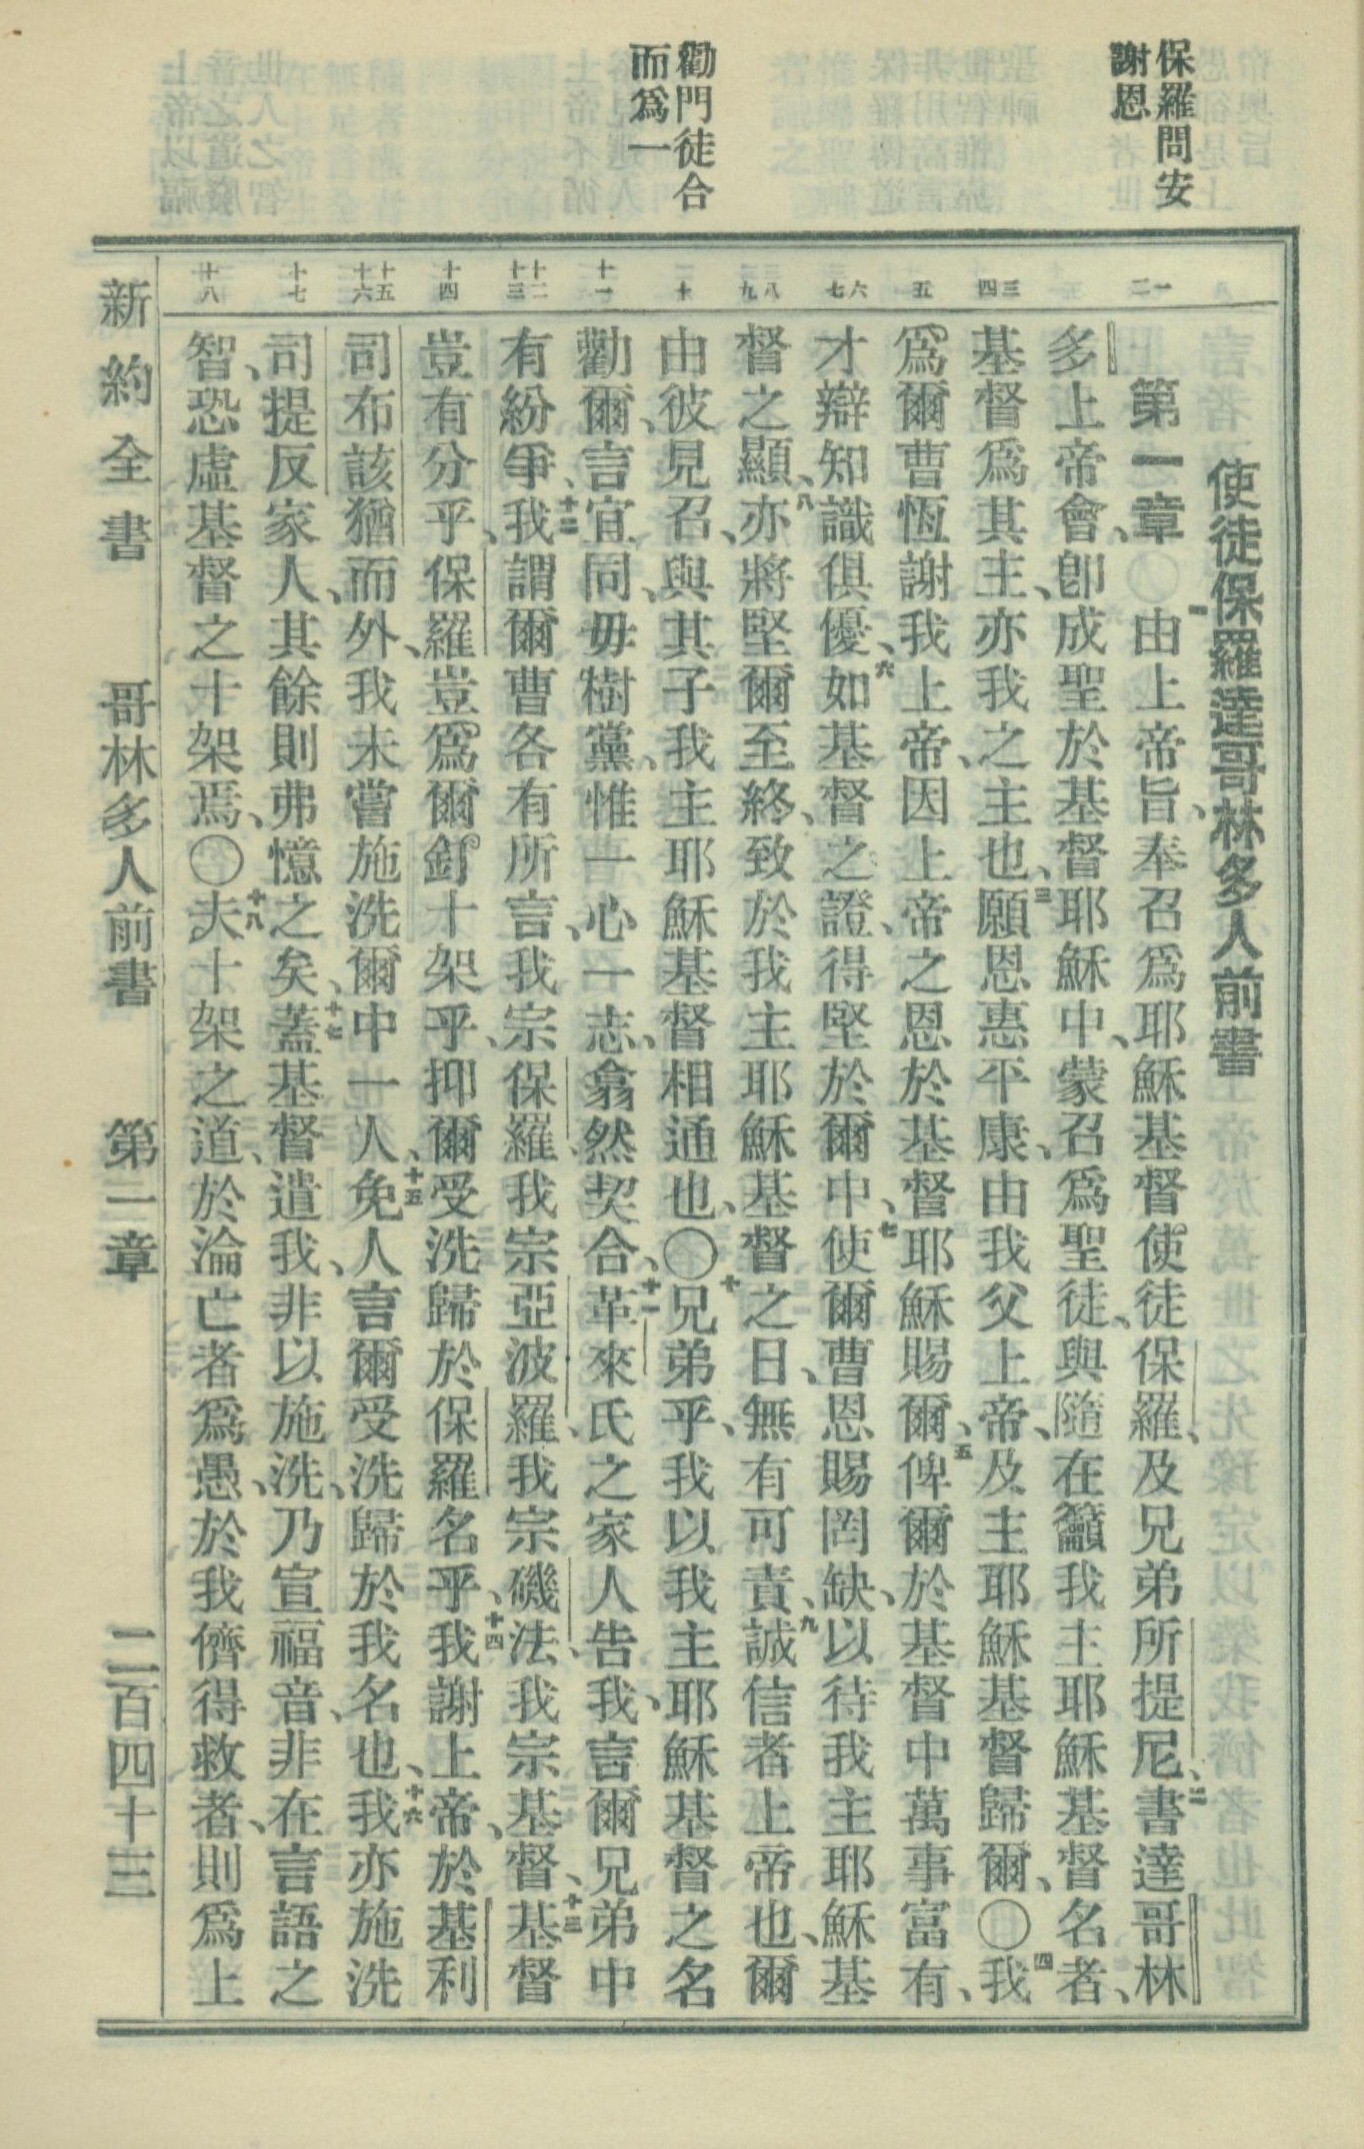 保羅問安
謝恩
勸門徒合
而爲一
一 二
三 四
五
六 七
八 九
十
十一
十二 十三
十四
十五 十六
十七
十八
使徒保羅達哥林多人前書
第一章〇一由上帝旨、奉召爲耶穌基督使徒保羅、及兄弟所提尼、二書達哥林
多上帝會、卽成聖於基督耶穌中、蒙召爲聖徒、與隨在籲我主耶穌基督名者、
基督爲其主、亦我之主也、三願恩惠平康、由我父上帝、及主耶穌基督歸爾、〇四我
爲爾曹恆謝我上帝、因上帝之恩、於基督耶穌賜爾、五俾爾於基督中萬事富有、
才辯知識俱優、六如基督之證、得堅於爾中、七使爾曹恩賜罔缺、以待我主耶穌基
督之顯、八亦將堅爾至終、致於我主耶穌基督之日、無有可責、九誠信者上帝也、爾
由彼見召、與其子我主耶穌基督相通也、〇十兄弟乎、我以我主耶穌基督之名
勸爾、言宜同、毋樹黨、惟一心一志、翕然契合、十一革來氏之家人告我、言爾兄弟中
有紛爭、十二我謂爾曹各有所言、我宗保羅、我宗亞波羅、我宗磯法、我宗基督、十三基督
豈有分乎、保羅豈爲爾釘十架乎、抑爾受洗歸於保羅名乎、十四我謝上帝、於基利
司布該猶而外、我未嘗施洗爾中一人、十五免人言爾受洗歸於我名也、十六我亦施洗
司提反家人、其餘則弗憶之矣、十七蓋基督遣我、非以施洗、乃宣福音、非在言語之
智、恐虛基督之十架焉、〇十八夫十架之道、於淪亡者爲愚、於我儕得救者、則爲上
新約全書 哥林多人前書 第一章 二百四十三